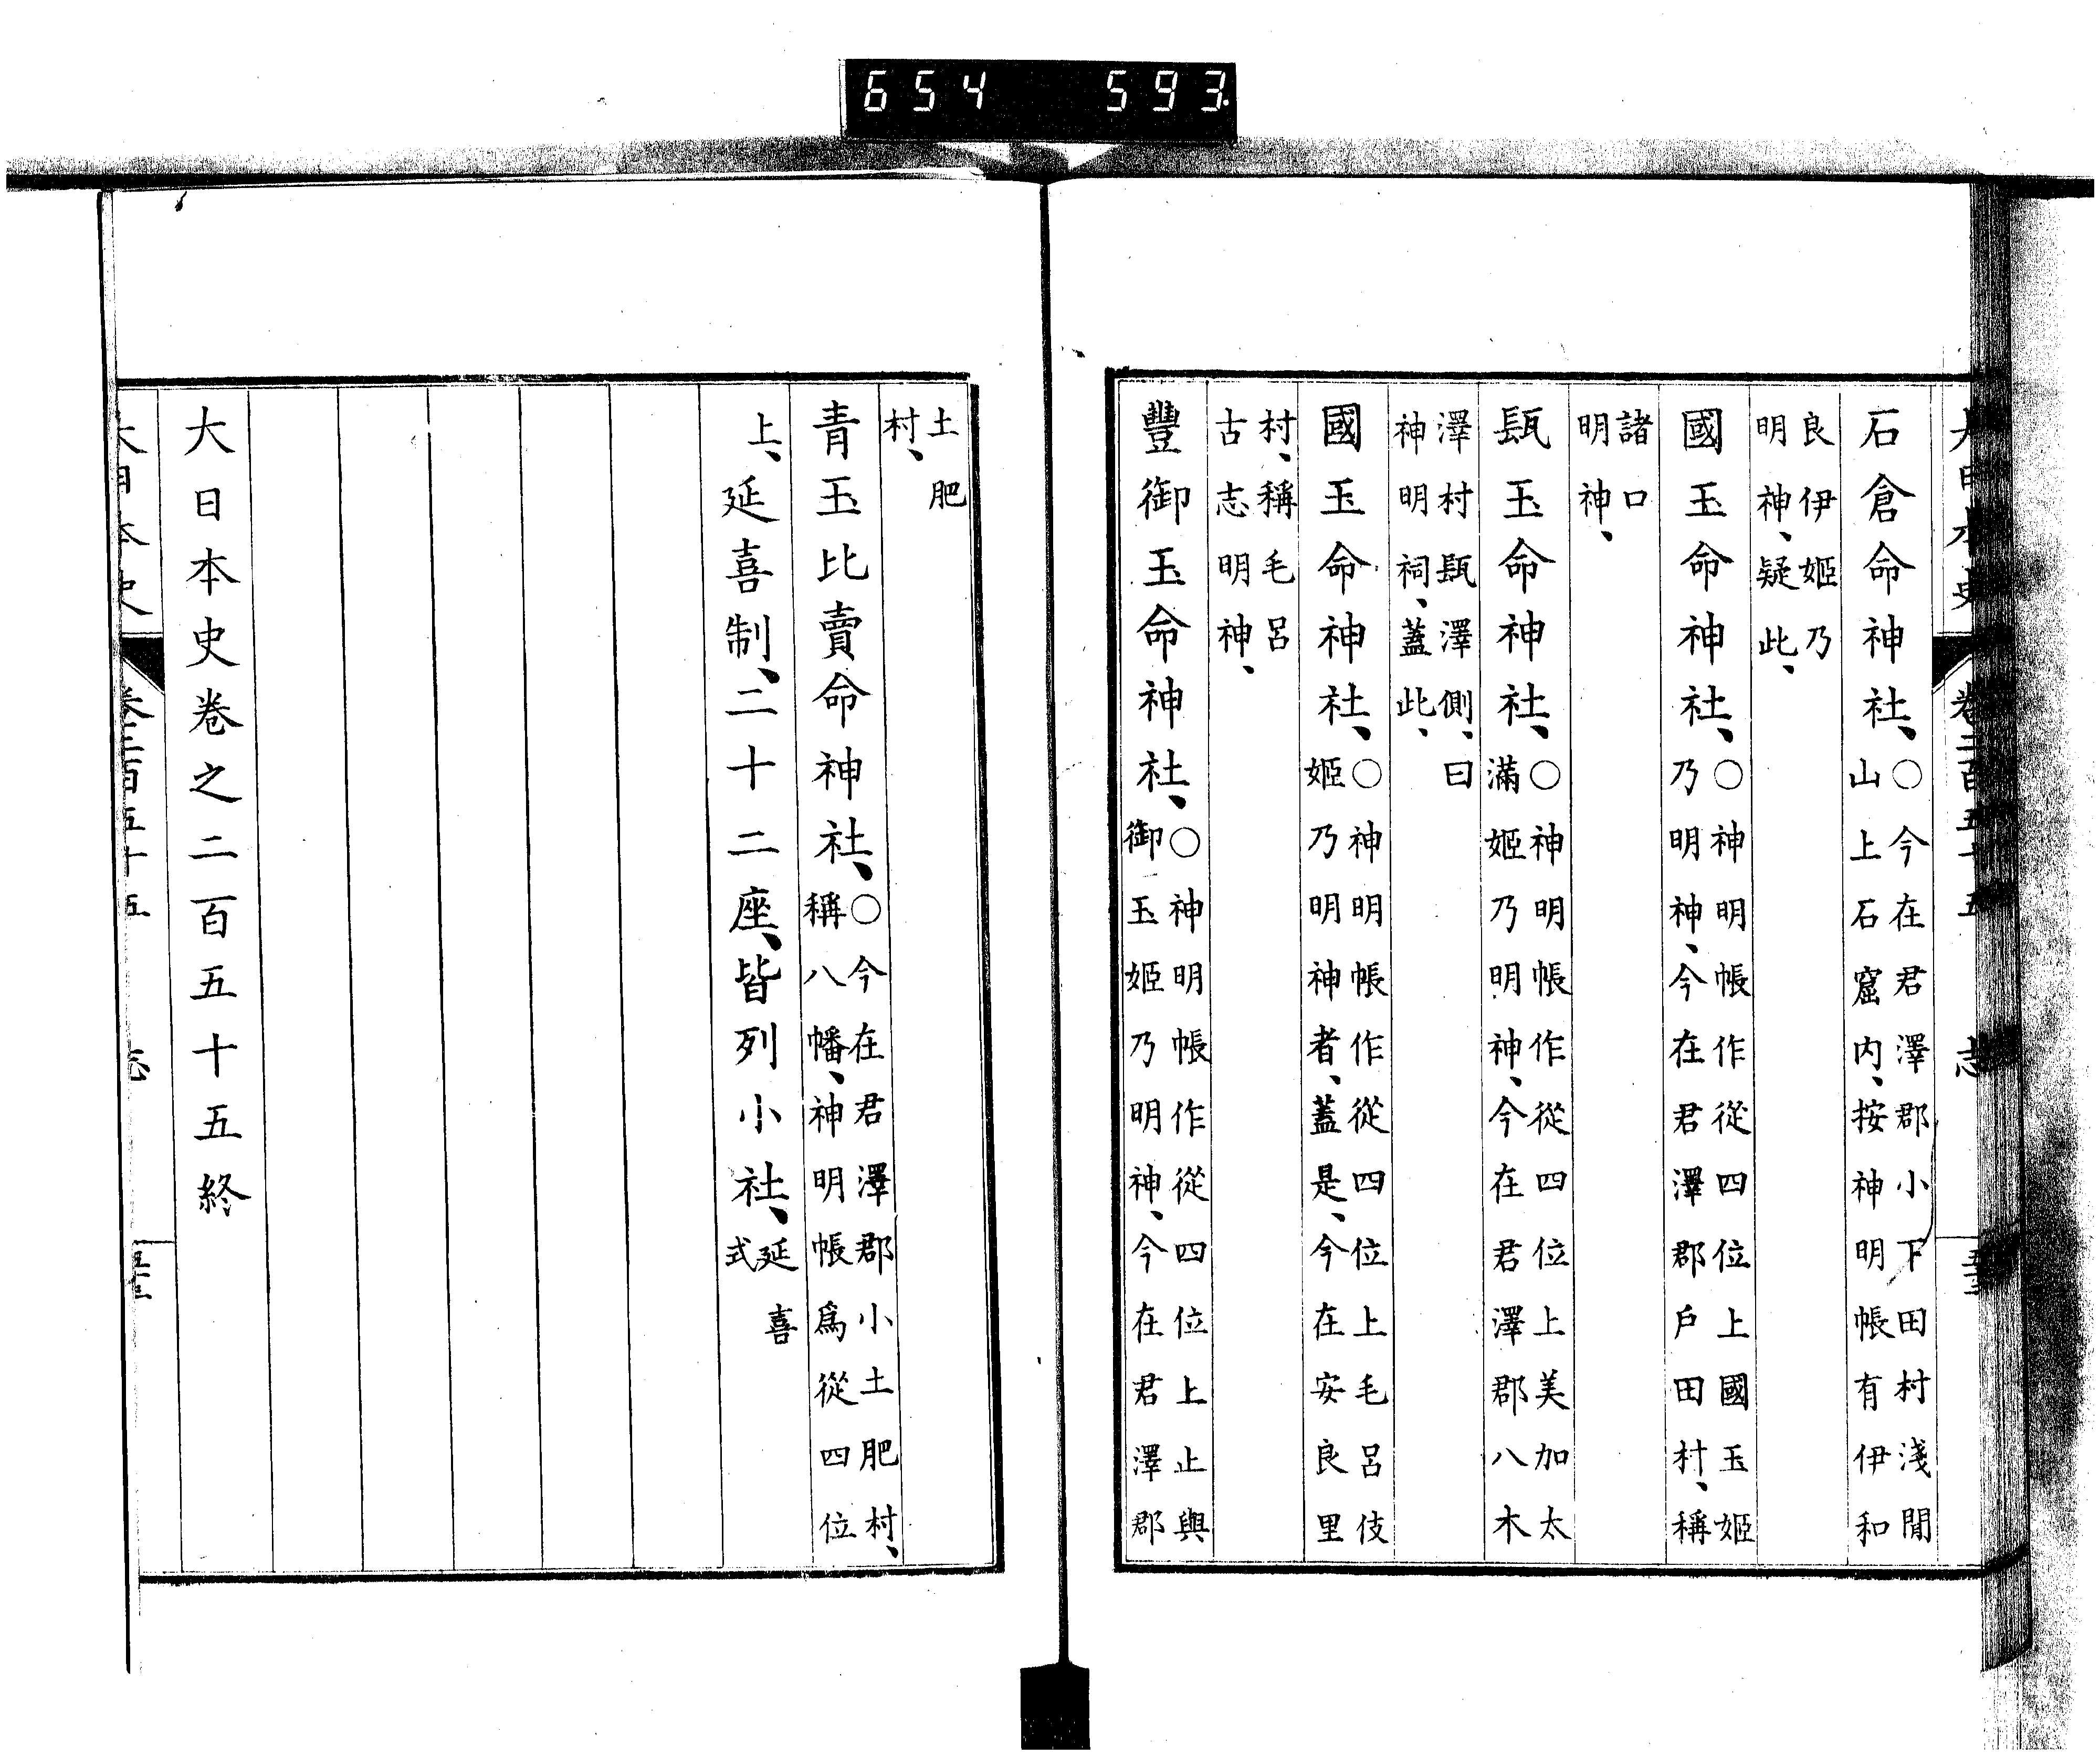 654 593
大日本史 卷二百五十五 志
石倉命神社、○今在君澤郡小下田村淺閒
山上石窟内、按神明帳有伊和
良伊姬乃
明神、疑此、
國玉命神社、○神明帳作從四位上國玉姬
乃明神、今在君澤郡戶田村、稱
諸口
明神、
瓺玉命神社、○神明帳作從四位上美加太
滿姬乃明神、今在君澤郡八木
澤村瓺澤側、曰
神明祠、蓋此、
國玉命神社、○神明帳作從四位上毛呂伎
姬乃明神者、蓋是、今在安良里
村、稱毛呂
古志明神、
豐御玉命神社、○神明帳作從四位上止與
御玉姬乃明神、今在君澤郡
土肥
村、
青玉比賣命神社、○今在君澤郡小土肥村、
稱八幡、神明帳爲從四位
上、延喜制、二十二座、皆列小社、延喜
式
大日本史卷之二百五十五終
大日本史 卷二百五十五 志